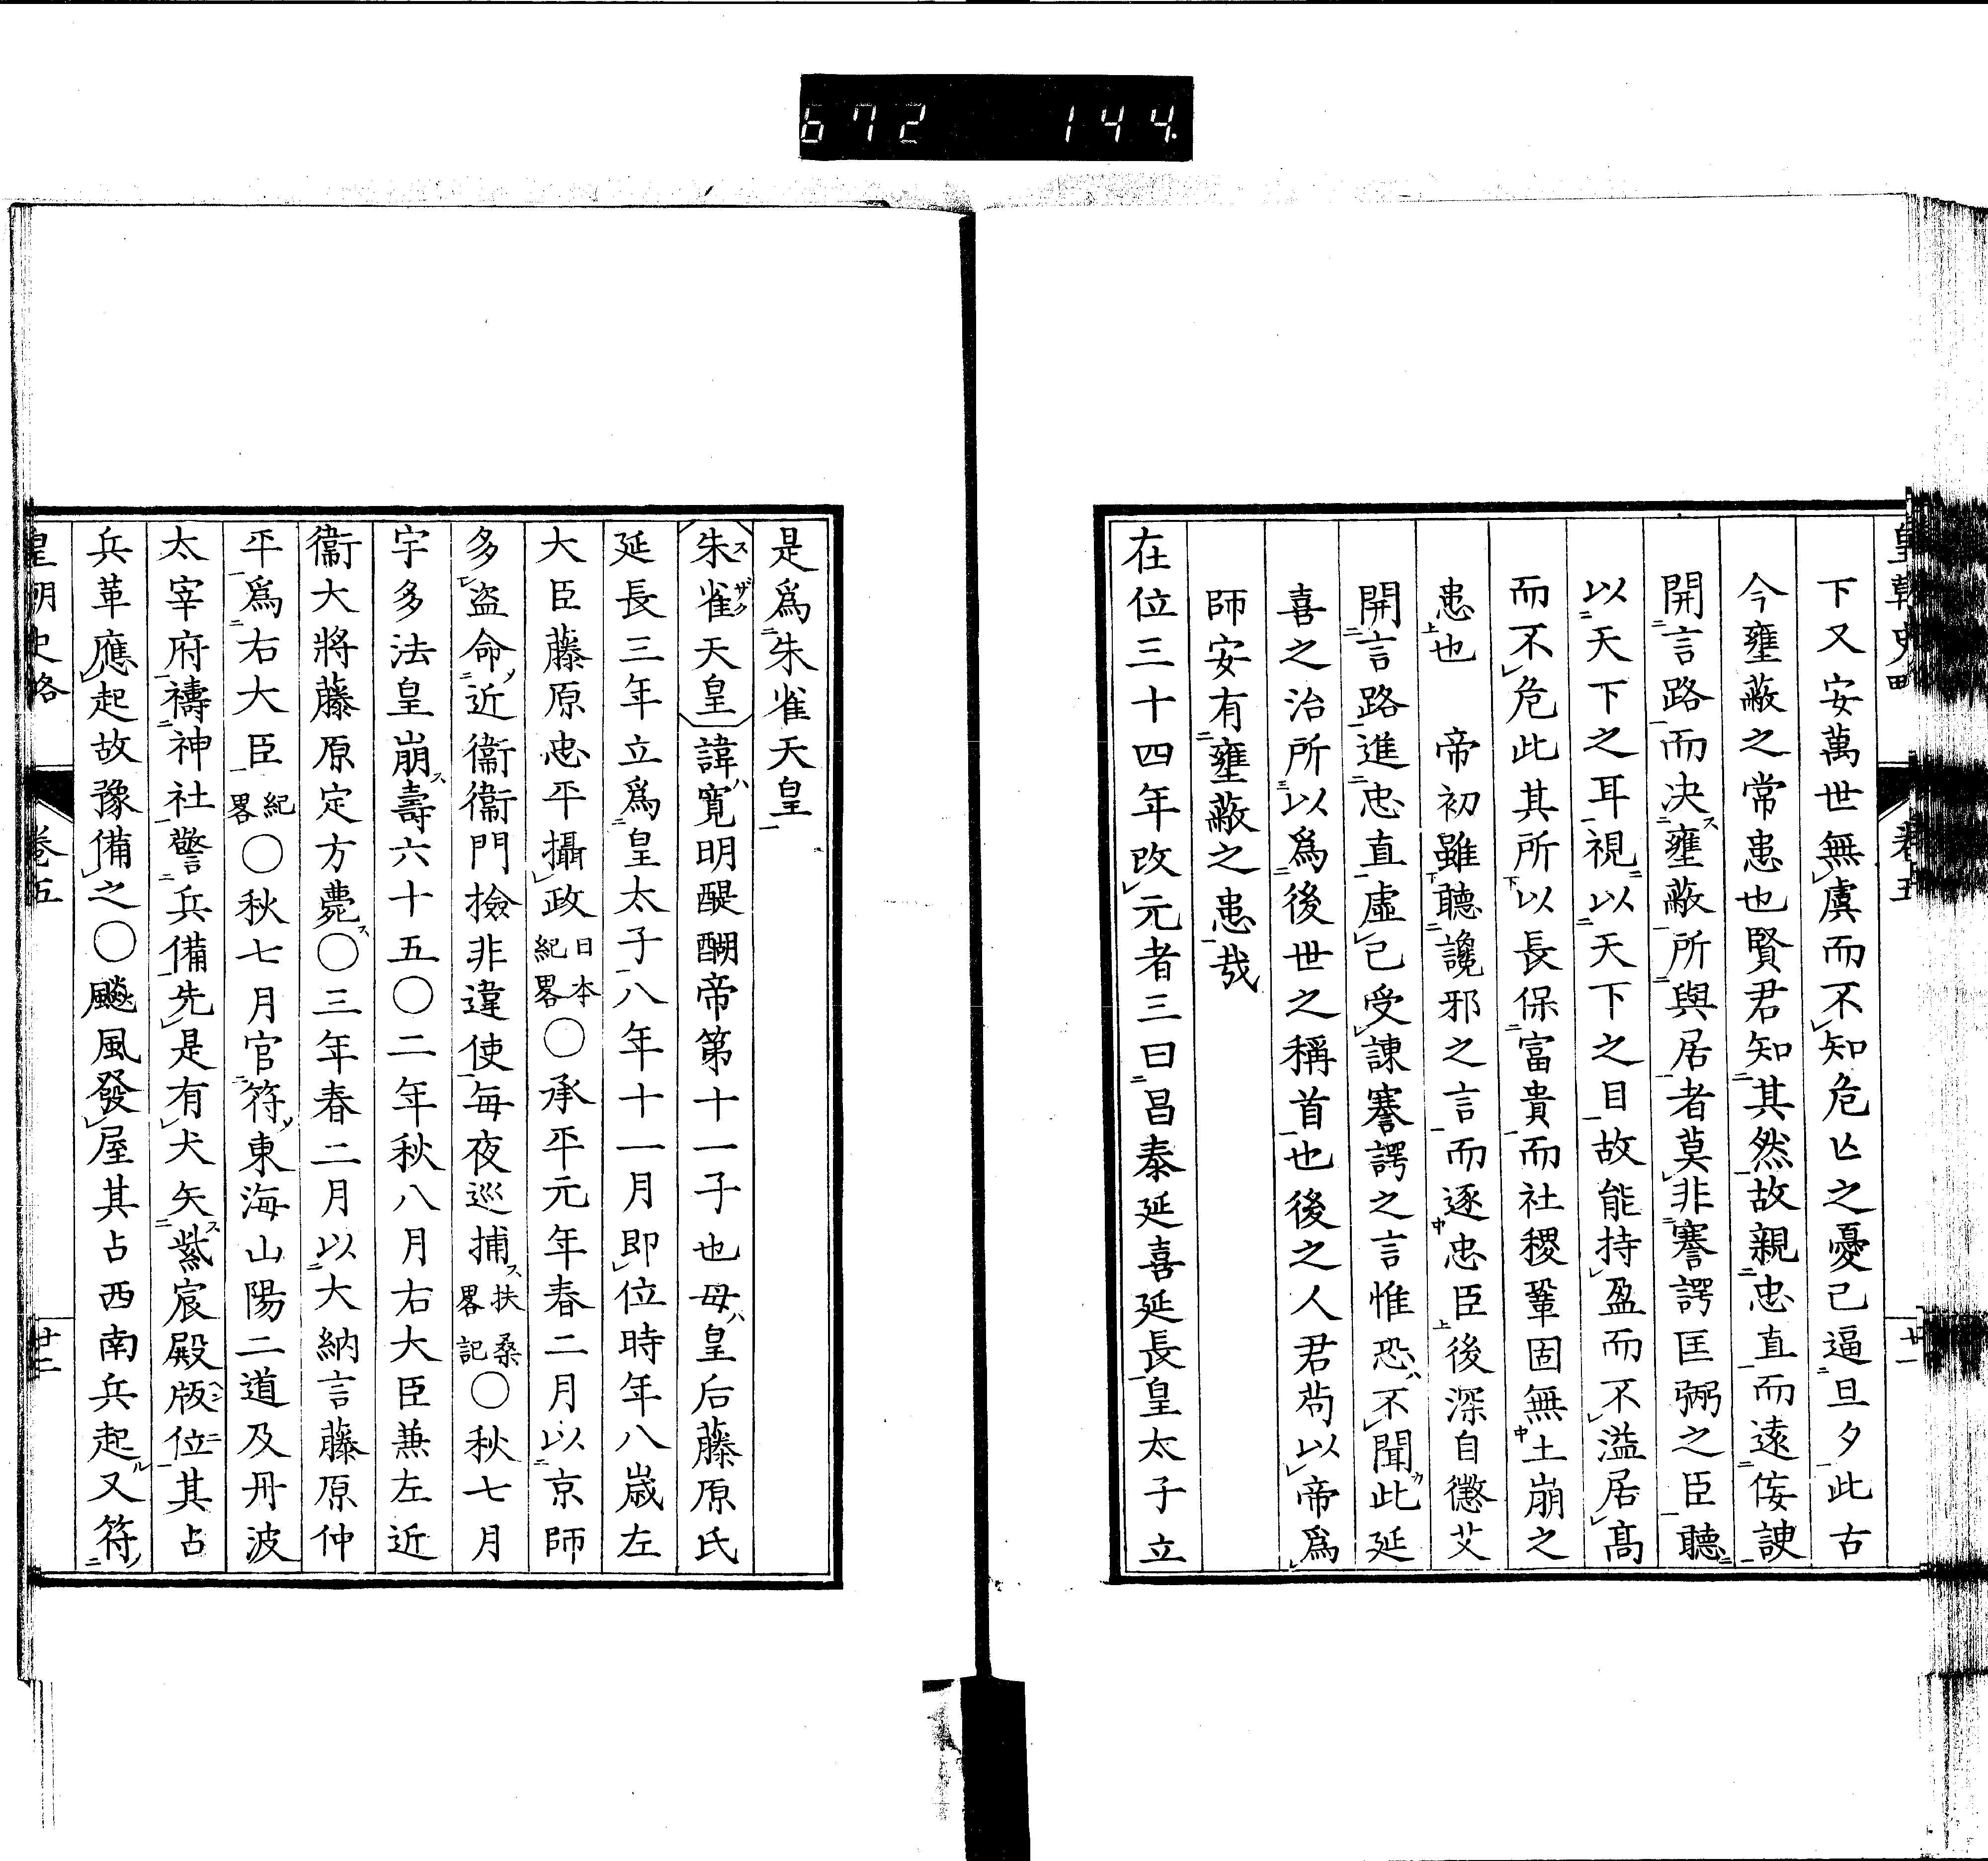 672 144
下又安萬世無虞而不知危亡之憂已逼旦夕此古
今壅蔽之常患也賢君知其然故親忠直而遠佞諛
開言路而决壅蔽所與居者莫非謇諤匡弼之臣聽
以天下之耳視以天下之目故能持盈而不溢居髙
而不危此其所以長保富貴而社稷鞏固無土崩之
患也　帝初雖聽讒邪之言而逐忠臣後深自懲艾
開言路進忠直虛己受諫謇諤之言惟恐不聞此延
喜之治所以爲後世之稱首也後之人君苟以帝爲
師安有壅蔽之患哉
在位三十四年改元者三曰昌泰延喜延長皇太子立
是爲朱雀天皇
朱雀天皇諱寬明醍醐帝第十一子也母皇后藤原氏
延長三年立爲皇太子八年十一月即位時年八歲左
大臣藤原忠平攝政日本紀畧〇承平元年春二月以京師
多盜命近衞衞門撿非違使每夜巡捕扶桑畧記〇秋七月
宇多法皇崩壽六十五〇二年秋八月右大臣兼左近
衞大將藤原定方薨〇三年春二月以大納言藤原仲
平爲右大臣紀畧〇秋七月官符東海山陽二道及丹波
太宰府禱神社警兵備先是有犬矢紫宸殿版位其占
兵革應起故豫備之〇飈風發屋其占西南兵起又符
皇朝史略　卷五　廿二